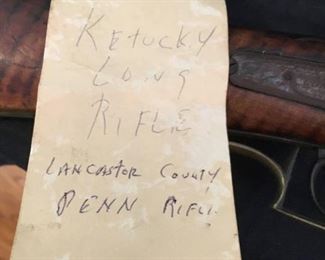 KETUCKY
LONG
RIFLE
LANCASTOR COUNTY
PENN RIFLE